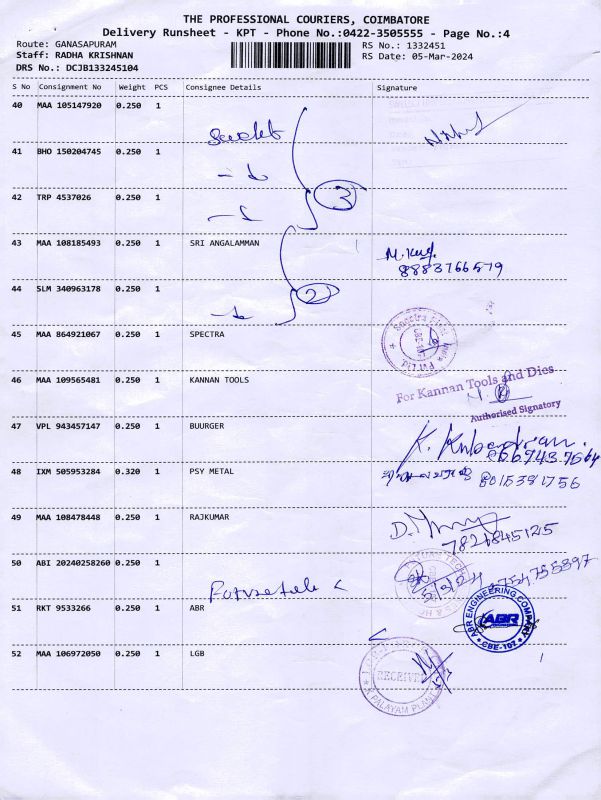 THE PROFESSIONAL COURIERS, COIMBATORE
Delivery Runsheet - KPT - Phone No.:0422-3505555 - Page No.:4
Route: GANASAPURAM
RS No.: 1332451
Staff: RADHA KRISHNAN
RS Date: 05-Mar-2024
DRS No.: DCJB133245104
S No Consignment No Weight PCS Consignee Details Signature
40 MAA 105147920 0.250 1
41 BHO 150204745 0.250 1
42 TRP 4537026 0.250 1
3
43 MAA 108185493 0.250 1 SRI ANGALAMMAN
8883766579
44 SLM 340963178 0.250 1
2
45 MAA 864921067 0.250 1 SPECTRA
46 MAA 109565481 0.250 1 KANNAN TOOLS
For Kannan Tools and Dies
Authorised Signatory
47 VPL 943457147 0.250 1 BUURGER
48 IXM 505953284 0.320 1 PSY METAL
8015381756
49 MAA 108478448 0.250 1 RAJKUMAR
50 ABI 20240258260 0.250 1
5/3/24
51 RKT 9533266 0.250 1 ABR
ABR ENGINEERING COMPANY
ABR
CBE-107
52 MAA 106972050 0.250 1 LGB
RECEIVED
K PALAYAM PLANT